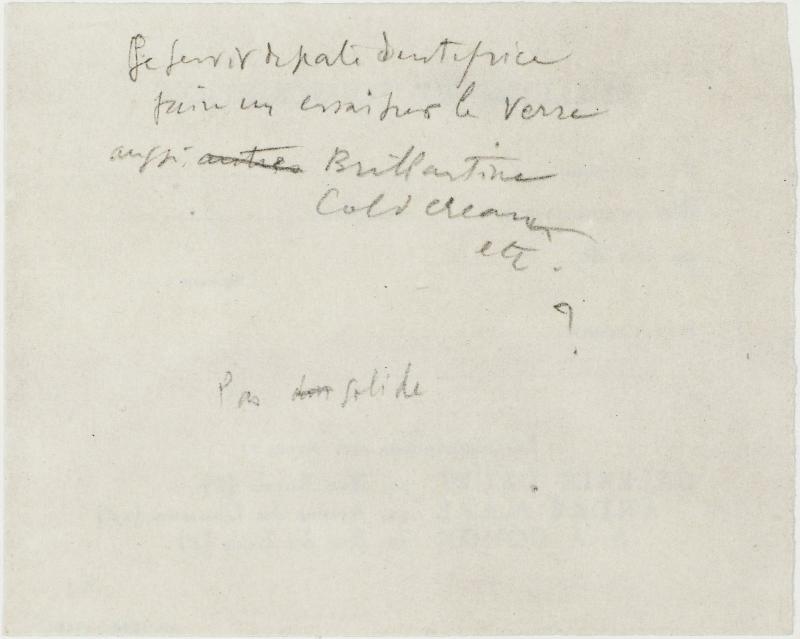 Se servir de pate dentifrice
faire un essai sur le Verre
aussi autres Brillantine
Cold cream
etc.
?
Pas solide